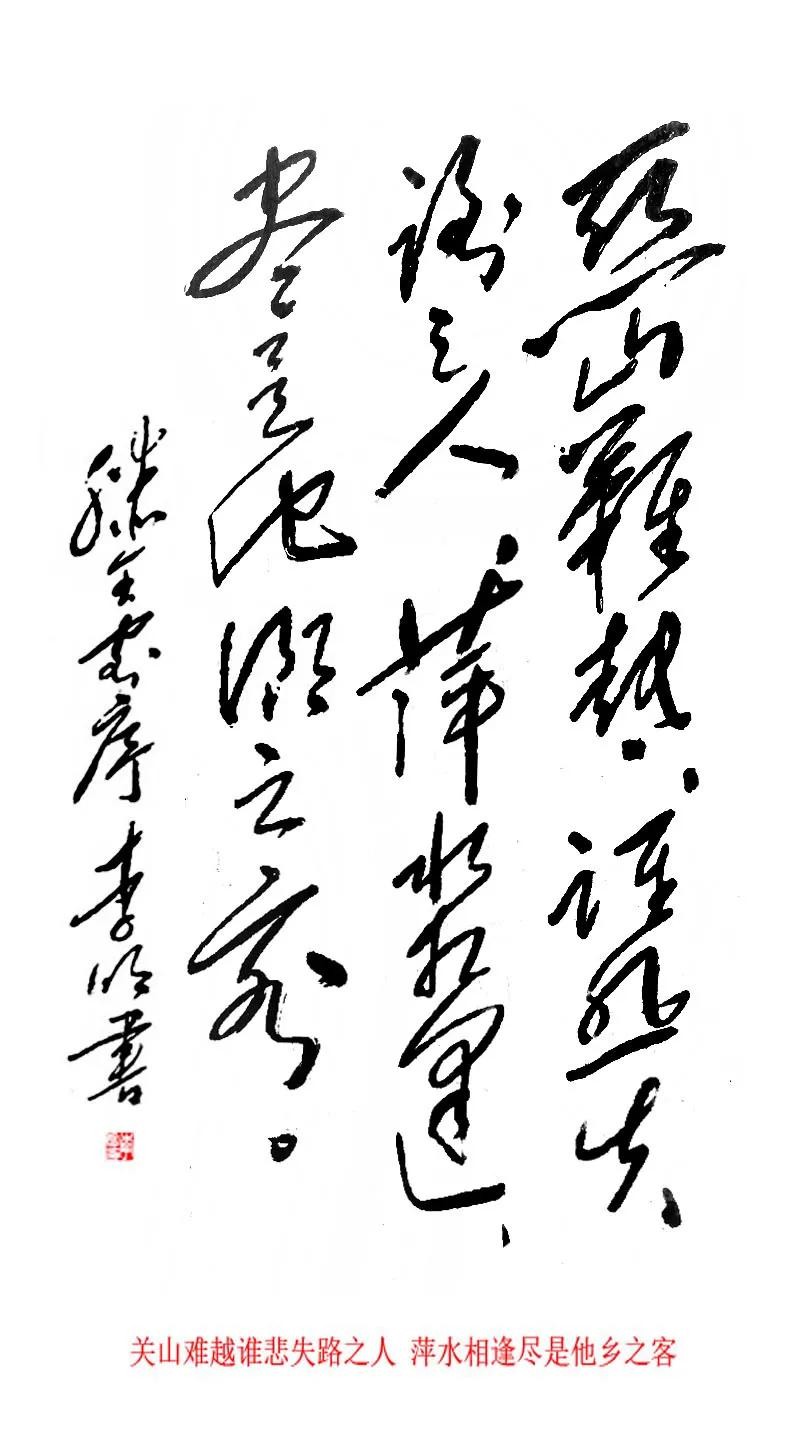 关山难越、谁悲失
路之人、萍水相逢、
尽是他乡之客。
滕王阁序 李明书
关山难越谁悲失路之人 萍水相逢尽是他乡之客